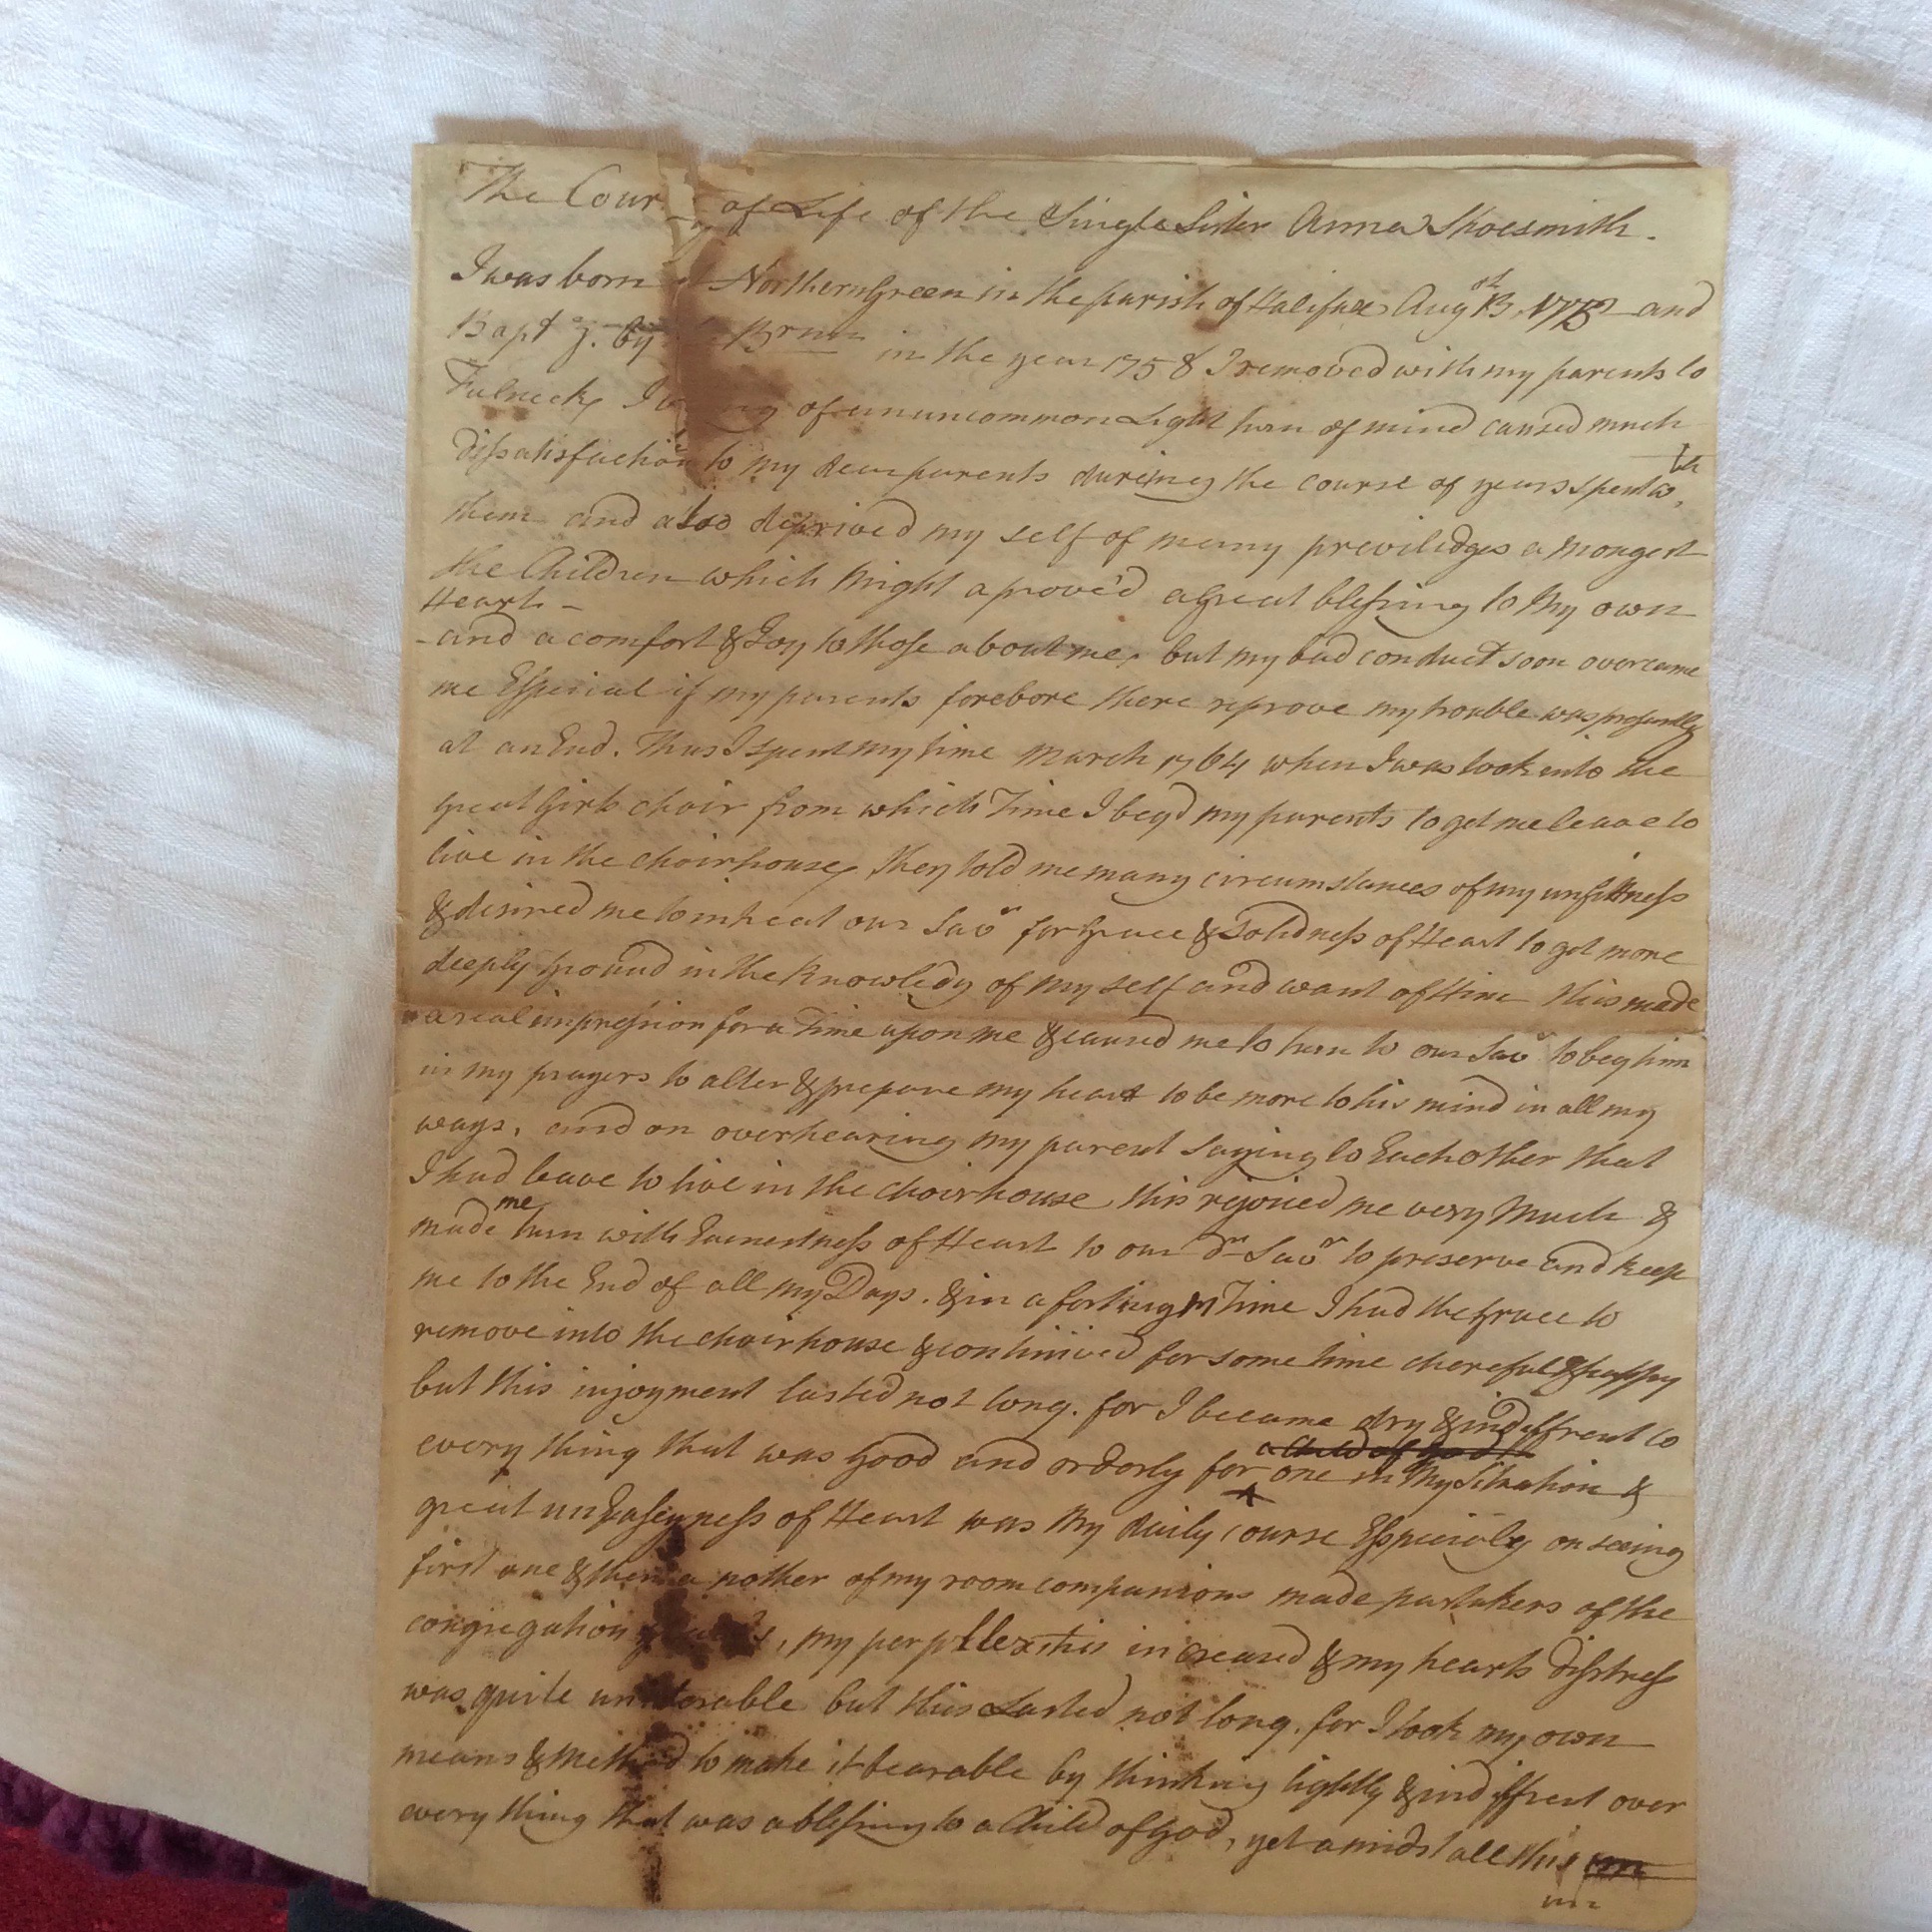 The Cour of Life of the Single Sister Anna Shoesmith.
I was born Northern Green in the parish of Halifax Augst 13 and
Bapt'z. by in the year 1758 I removed with my parents to
Fulneck, I of an uncommon Light turn of mind caused much
dissatisfaction to my dear parents dureing the course of years spent wth
them and also deprived my self of many priviledges amongest
the Children which Might a prove'd a Great blessing to My own
Heart -
- and a comfort & Joy to those about me, but my bad conduct soon overcame
me Espicial if my parents forebore there reprove my trouble was presently
at an End. Thus I spent my time March 1764 when I was took into the
great Girls choir from which Time I beg'd my parents to get me leave to
live in the choirhouse, they told me many circumstances of my unfittness
& desired me to intreat our Savr for Grace & Solidness of Heart to get more
deeply Ground in the Knowledg of my self and want of Him this made
a real impression for a Time upon me & caused me to turn to our Savr to beg him
in my prayers to alter & prepare my heart to be more to his mind in all my
ways, and on overhearing my parent saying to Each other that
I had leave to live in the choirhouse, this rejoiced me very Much &
made me turn with Earnestness of Heart to our dr Savr to preserve and keep
me to the End of all my Days. & in a fortnig Time I had the Grace to
remove into the choirhouse & continued for some time chereful & happy
but this injoyment lasted not long. for I became dry & indiffrent to
every thing that was Good and orderly for a Child of God one in My Situation &
great unEaseyness of Heart was My daily course Espicialy on seeing
first one & then a nother of my room companions made partakers of the
congregation, my perpllexitis increased & my hearts disstress
was quite but this Lasted not long, for I took my own
means & Method to make it bearable by thinking lightly & indiffrent over
every thing that was a blessing to a Child of God, yet amidst all this